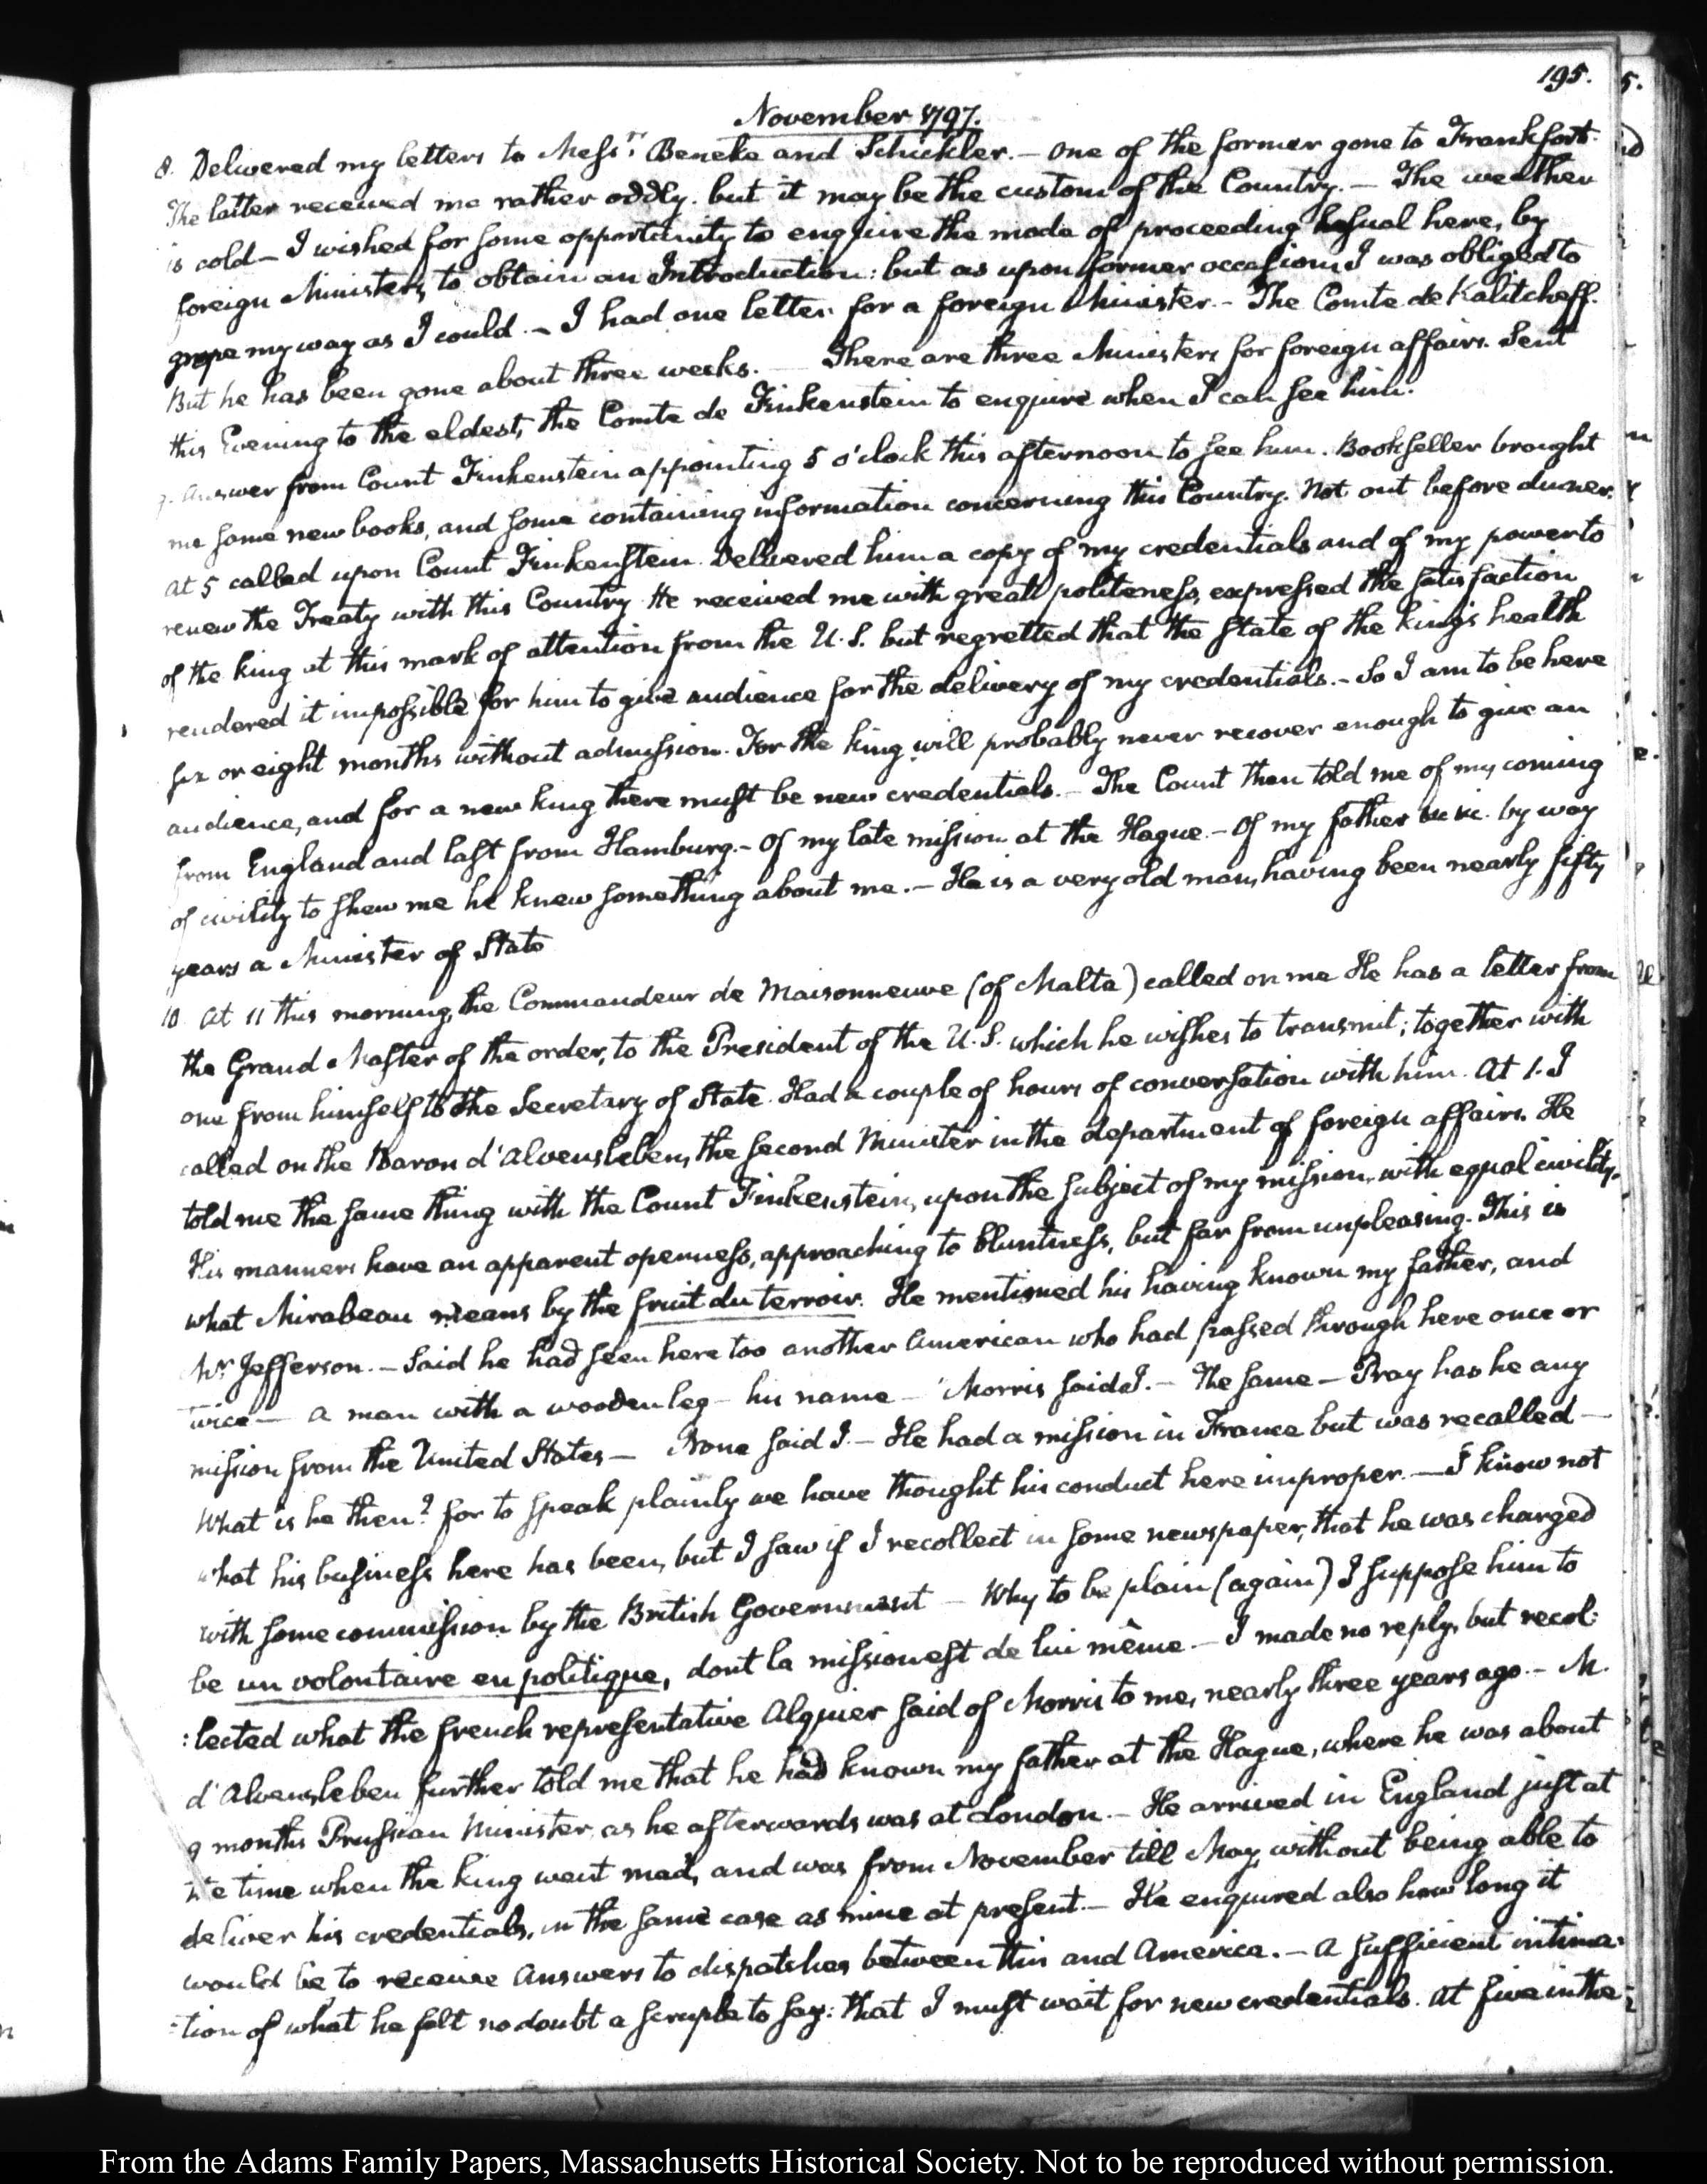 195.
November 1797.
8. Delivered my letters to Messrs. Beneke and Schickler. — One of the former gone to Frankfort.
The latter received me rather oddly. but it may be the custom of the Country. — The weather
is cold — I wished for some opportunity to enquire the mode of proceeding usual here, by
foreign Ministers, to obtain an Introduction: but as upon former occasions I was obliged to
grope my way as I could. — I had one letter for a foreign Minister. — The Comte de Kalitcheff.
But he has been gone about three weeks. — There are three Ministers for foreign affairs. Sent
this Evening to the eldest, the Comte de Finkenstein to enquire when I can see him.
9. Answer from Count Finkenstein appointing 5 o'clock this afternoon to see him. Bookseller brought
me some new books, and some containing information concerning this Country. Not out before dinner.
At 5 called upon Count Finkenstein. Delivered him a copy of my credentials and of my power to
renew the Treaty with this Country. He received me with great politeness, expressed the satisfaction
of the king at this mark of attention from the U.S. but regretted that the state of the king's health
rendered it impossible for him to give audience for the delivery of my credentials. — So I am to be here
six or eight months without admission. For the king will probably never recover enough to give an
audience, and for a new king there must be new credentials. — The Count then told me of my coming
from England and last from Hamburg. — Of my late mission at the Hague. — Of my father &c. &c. by way
of civility to shew me he knew something about me. — He is a very old man, having been nearly fifty
years a Minister of State
10. At 11 this morning, the Commandeur de Maisonneuve (of Malta) called on me He has a letter from
the Grand Master of the order, to the President of the U.S. which he wishes to transmit; together with
one from himself to the Secretary of State. Had a couple of hours of conversation with him. At 1. I
called on the Baron d'Alvensleben, the second Minister in the department of foreign affairs. He
told me the same thing with the Count Finkenstein, upon the subject of my mission, with equal civility.
His manners have an apparent openness, approaching to bluntness, but far from unpleasing. This is
what Mirabeau means by the fruit du terroir. He mentioned his having known my father, and
Mr. Jefferson. — Said he had seen here too another American who had passed through here once or
twice — a man with a wooden leg — his name — Morris said I. — The same — Pray has he any
mission from the United States — None said I. — He had a mission in France but was recalled —
What is he then? for to speak plainly we have thought his conduct here improper. — I know not
what his business here has been, but I saw if I recollect in some newspaper, that he was charged
with some commission by the British Government — Why to be plain (again) I suppose him to
be un volontaire en politique, dont la mission est de lui même. — I made no reply, but recol:
:lected what the french representative Alquier said of Morris to me, nearly three years ago. — M.
d'Alvensleben further told me that he had known my father at the Hague, where he was about
9 months Prussian Minister, as he afterwards was at London. — He arrived in England just at
the time when the king went mad, and was from November till May, without being able to
deliver his credentials, in the same case as mine at present. — He enquired also how long it
would be to receive answers to dispatches between this and America. — A sufficient intima:
:tion of what he felt no doubt a scruple to say: that I must wait for new credentials. At five in the
From the Adams Family Papers, Massachusetts Historical Society. Not to be reproduced without permission.